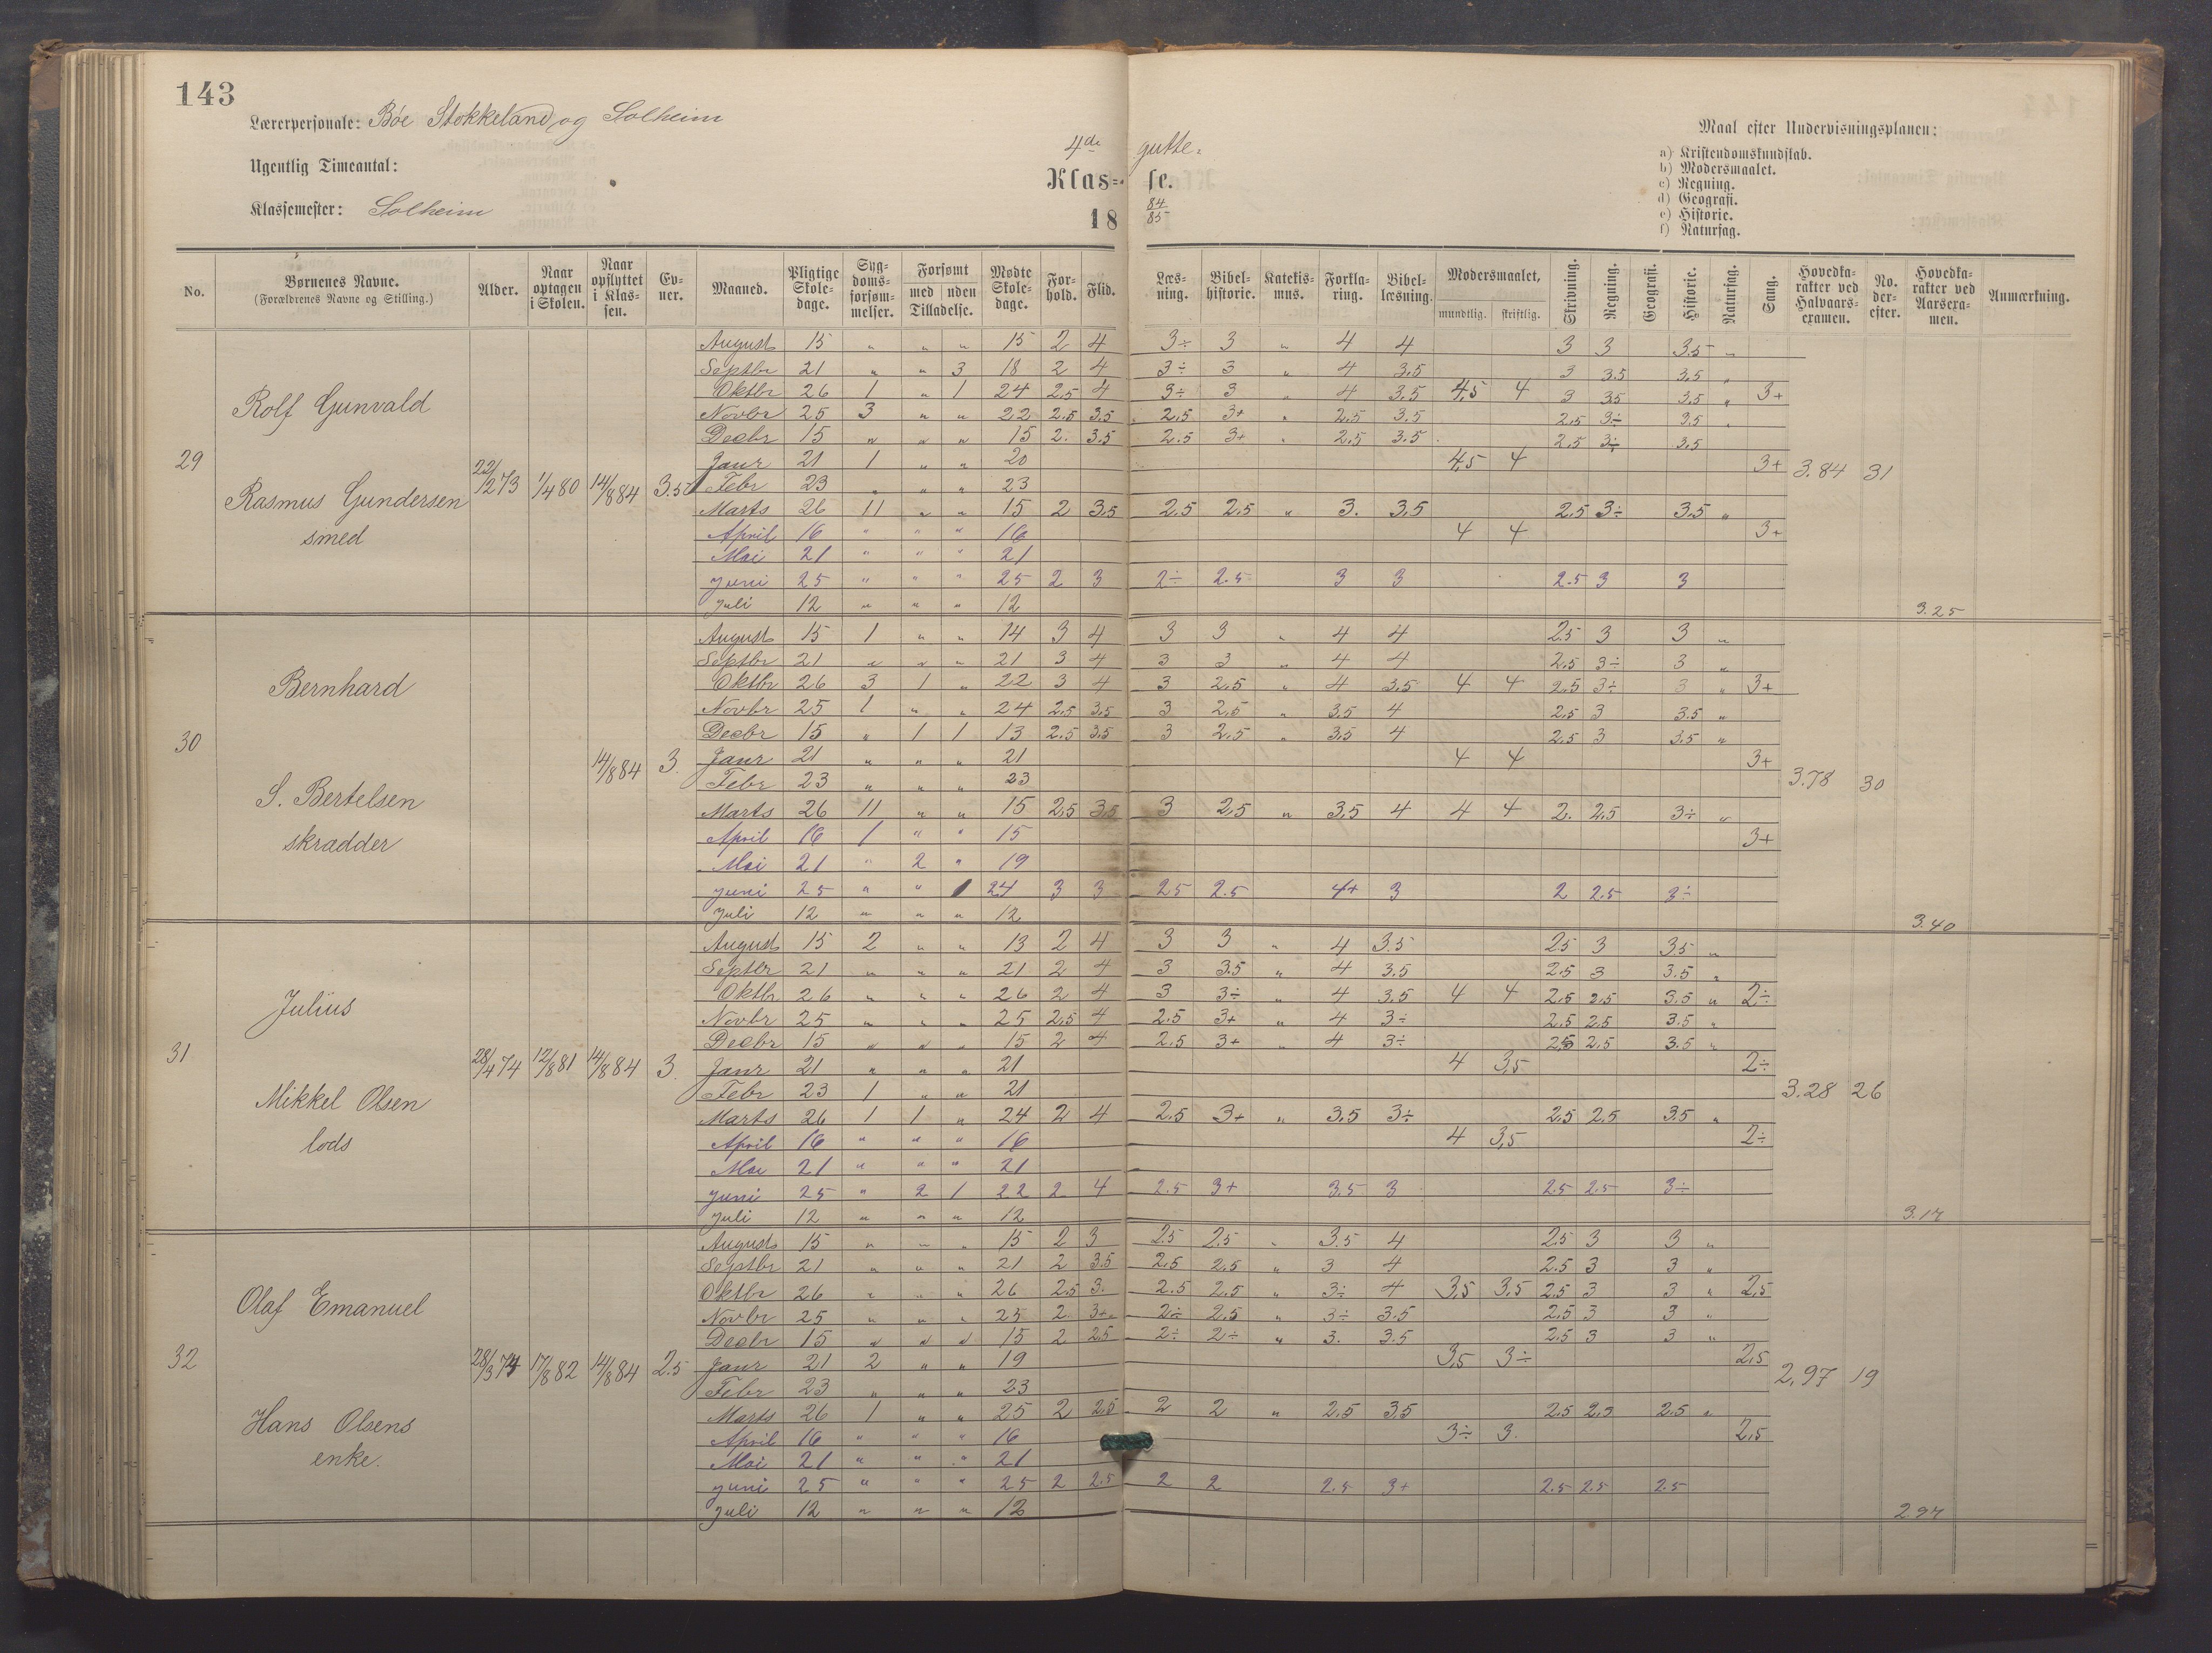 143
Lærerpersonale: Bøe Stokkeland og Solheim
Ugentlig Timeantal:
Klassemester: Solheim
4de gutte-
Klas- se.
18 84/85
Maal efter Undervisningsplanen:
a) Kristendomskundskab.
b) Modersmaalet.
c) Regning.
d) Geografi.
e) Historie.
f) Naturfag.
No. Børnenes Navne. (Forældrenes Navne og Stilling.) Alder. Naar optagen i Skolen. Naar opflyttet i Klassen. Evner. Maaned. Pligtige Skoledage. Sygdomsforsømmelser. Forsømt med uden Tilladelse. Mødte Skoledage. Forhold. Flid. Læsning. Bibelhistorie. Katekismus. Forklaring. Bibellæsning. Modersmaalet, mundtlig. skriftlig. Skrivning. Regning. Geografi. Historie. Naturfag. Sang. Hovedkarakter ved Halvaarsexamen. No. derefter. Hovedkarakter ved Aarsexamen. Anmærkning.
29 Rolf Gunvald
Rasmus Gundersen
smed
22/2 73 1/4 80 14/8 84 3.5 3.84 31
August 15 „ „ „ 15 2 4 3÷ 3 „ 4 4 3 3 3.5 „
Septbr 21 „ „ 3 18 2 4 3÷ 3 „ 4 3.5 3 3.5 3.5 „
Oktbr 26 1 „ 1 24 2.5 4 3÷ 3 „ 4 3.5 4,5 4 3 3.5 3.5 „ 3+
Novbr 25 3 „ „ 22 2.5 3.5 2.5 3+ „ 2.5 3.5 2.5 3÷ 3.5 „
Decbr 15 „ „ „ 15 2. 3.5 2.5 3+ „ 2.5 3.5 2.5 3÷ 3.5
Janr 21 1 „ „ 20 4,5 4 3+
Febr 23 „ „ „ 23
Marts 26 11 „ „ 15 2 3.5 2.5 2.5 „ 3. 3.5 2.5 3÷ 3.5 „
April 16 „ „ „ 16 4 4 3+
Mai 21 „ „ „ 21
Juni 25 „ „ „ 25 2 3 2÷ 2.5 3 3 2.5 3 3
Juli 12 „ „ „ 12 3.25
30 Bernhard
S. Bertelsen
skrædder
14/8 84 3. 3.78 30
August 15 1 „ „ 14 3 4 3 3 „ 4 4 2.5 3 3 „
Septbr 21 „ „ „ 21 3 4 3 3 „ 4 4 2.5 3÷ 3 „
Oktbr 26 3 1 „ 22 3 4 3 2.5 „ 4 3.5 4 4 2.5 3÷ 3 „ 3+
Novbr 25 1 „ „ 24 2.5 3.5 3 2.5 „ 3.5 4 2.5 3 3.5 „
Decbr 15 „ 1 1 13 2.5 3.5 3 2.5 „ 3.5 4 2.5 3 3.5 „
Janr 21 „ „ „ 21 4 4 3+
Febr 23 „ „ „ 23
Marts 26 11 „ „ 15 2,5 3,5 3 2,5 „ 3,5 4 4 4 2. 2,5 3÷ „
April 16 1 „ „ 15 3+
Mai 21 „ 2 „ 19
Juni 25 „ „ 1 24 3 3 2.5 2.5 4+ 3 2 2.5 3÷
Juli 12 „ „ „ 12 3.40
31 Julius
Mikkel Olsen
lods
28/4 74 12/8 81 14/8 84 3. 3.28 26
August 15 2 „ „ 13 2 4 3 3 „ 4 3.5 2.5 3 3.5 „
Septbr 21 „ „ „ 21 2 4 3 3.5 „ 4 3.5 2.5 3 3.5 „
Oktbr 26 „ „ „ 26 2 4 3 3÷ „ 4 3.5 4 4 2.5 2.5 3.5 „ 2÷
Novbr 25 „ „ „ 25 2,5 4 2.5 3+ „ 4 3÷ 2.5 2.5 3.5 „
Decbr 15 „ „ „ 15 2 4 2.5 3+ „ 4 3÷ 2.5 2.5 3.5 „
Janr 21 „ „ „ 21 4 3,5 2÷
Febr 23 1 „ „ 21
Marts 26 1 1 „ 24 2 4 2.5 3+ „ 3,5 3÷ 2.5 2.5 3.5 „
April 16 „ „ „ 16 4 3,5 2÷
Mai 21 „ „ „ 21
Juni 25 „ 2 1 22 2 4 2.5 3+ 3.5 3 2.5 2.5 3÷
Juli 12 „ „ „ 12 3.17
32 Olaf Emanuel
Hans Olsens
enke.
28/3 74 17/8 82 14/8 84 2.5 2,97 19
August 15 „ „ „ 15 2 3 2.5 2.5 „ 3.5 4 2.5 3 3 „
Septbr 21 „ „ „ 21 2 3.5 2.5 2.5 „ 3 4 2.5 3 3 „
Oktbr 26 „ „ „ 26 2.5 3. 2.5 2.5 „ 3÷ 4 3,5 3.5 2.5 3 3 „ 2,5
Novbr 25 „ „ „ 25 2 3+ 2÷ 2.5 „ 3÷ 3.5 2.5 3 3 „
Decbr 15 „ „ „ 15 2 2.5 2÷ 2÷ „ 3. 3.5 2.5 3 3 „
Janr 21 2 „ „ 19 3,5 3÷ 2,5
Febr 23 „ „ „ 23
Marts 26 1 „ „ 25 2 2.5 2 2 „ 2.5 3.5 2.5 2.5 2.5 „
April 16 „ „ „ 16 3÷ 3. 2,5
Mai 21 „ „ „ 21
Juni 25 „ „ „ 25 2 2.5 2 2 2.5 3+ 2.5 2.5 2.5
Juli 12 „ „ „ 12 2.97